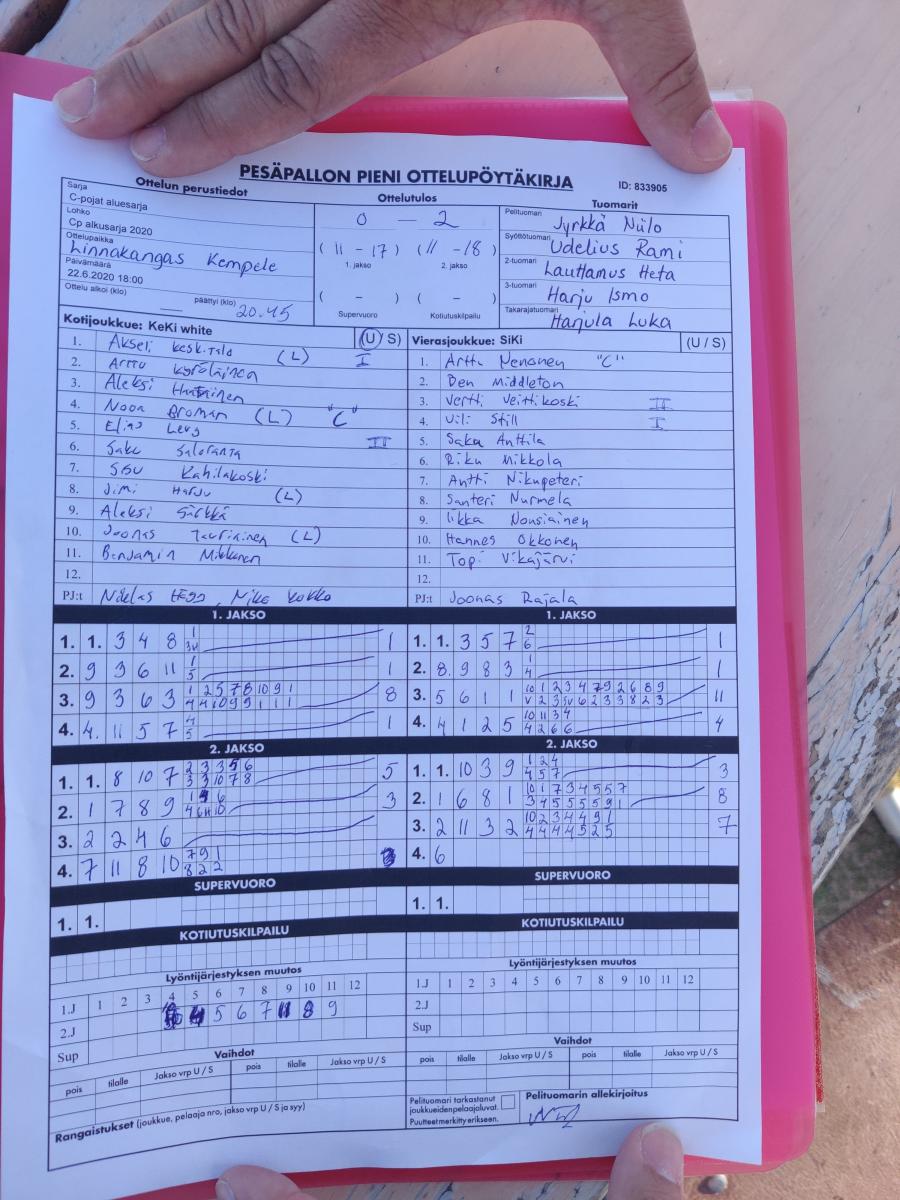 PESÄPALLON PIENI OTTELUPÖYTÄKIRJA
ID: 833905
Ottelun perustiedot
Ottelutulos
Tuomarit
Sarja
C-pojat aluesarja
Lohko
Cp alkusarja 2020
Ottelupaikka
Linnakangas Kempele
Päivämäärä
22.6.2020 18:00
Ottelu alkoi (klo) — päättyi (klo) 20.45
0 — 2
( 11 - 17 ) ( 11 - 18 )
1. jakso 2. jakso
( - ) ( - )
Supervuoro Kotiutuskilpailu
Pelituomari Jyrkkä Niilo
Syöttötuomari Udelius Rami
2-tuomari Lauttamus Heta
3-tuomari Harju Ismo
Takarajatuomari Harjula Luka
Kotijoukkue: KeKi white (U / S)
1. Akseli (L) I
2. Arttu Kyröläinen
3. Aleksi
4. Nooa Broman (L) "C"
5. Elias
6. Saku Saloranta II
7. Sisu Kahilakoski
8. Jimi Harju (L)
9. Aleksi Särkkä
10. Joonas Tauriainen (L)
11. Benjamin Mikkonen
12.
PJ:t Niklas , Mika Kokko
Vierasjoukkue: SiKi (U / S)
1. Arttu Nenonen "C"
2. Ben Middleton
3. Vertti Veittikoski II
4. Vili Still I
5. Saku Anttila
6. Riku Mikkola
7. Antti Nikupeteri
8. Santeri Nurmela
9. Iikka Nousiainen
10. Hannes Okkonen
11. Topi Vikajärvi
12.
PJ:t Joonas Rajala
1. JAKSO
1. 1. 3 4 8 1
2. 9 3 6 11 1 5 1
3. 9 3 6 3 1 2 5 7 8 10 9 1 8
4. 4. 11 5 7 4 5 1
2. JAKSO
1. 1. 8 10 7 2 3 3 5 6 3 3 10 7 8 5
2. 1 7 8 9 3
3. 2 2 4 6
4. 7 11 8 10 7 9 1 8 2 2
SUPERVUORO
1. 1.
KOTIUTUSKILPAILU
1. JAKSO
1. 1. 3 5 7 2 6 1
2. 8. 9 8 3 1 4 1
3. 5 6 1 1 10 1 2 3 4 7 9 2 6 8 9 11
4. 4 1 2 5 10 11 3 4 4 2 6 6 4
2. JAKSO
1. 1. 10 3 9 1 2 4 4 5 7 3
2. 1 6 8 1 10 1 7 3 4 5 5 7 3 4 5 5 5 5 9 1 8
3. 2 11 3 2 10 2 3 4 4 9 1 4 4 4 4 5 2 5 7
4. 6
SUPERVUORO
1. 1.
KOTIUTUSKILPAILU
Lyöntijärjestyksen muutos
1.J 1 2 3 4 5 6 7 8 9 10 11 12
2.J 5 6 7 11 8 9
Sup
Vaihdot
pois tilalle Jakso vrp U / S pois tilalle Jakso vrp U / S
Rangaistukset (joukkue, pelaaja nro, jakso vrp U / S ja syy)
Lyöntijärjestyksen muutos
1.J 1 2 3 4 5 6 7 8 9 10 11 12
2.J
Sup
Vaihdot
pois tilalle Jakso vrp U / S pois tilalle Jakso vrp U / S
Pelituomari tarkastanut
joukkueidenpelaajaluvat.
Puutteet merkitty erikseen.
Pelituomarin allekirjoitus